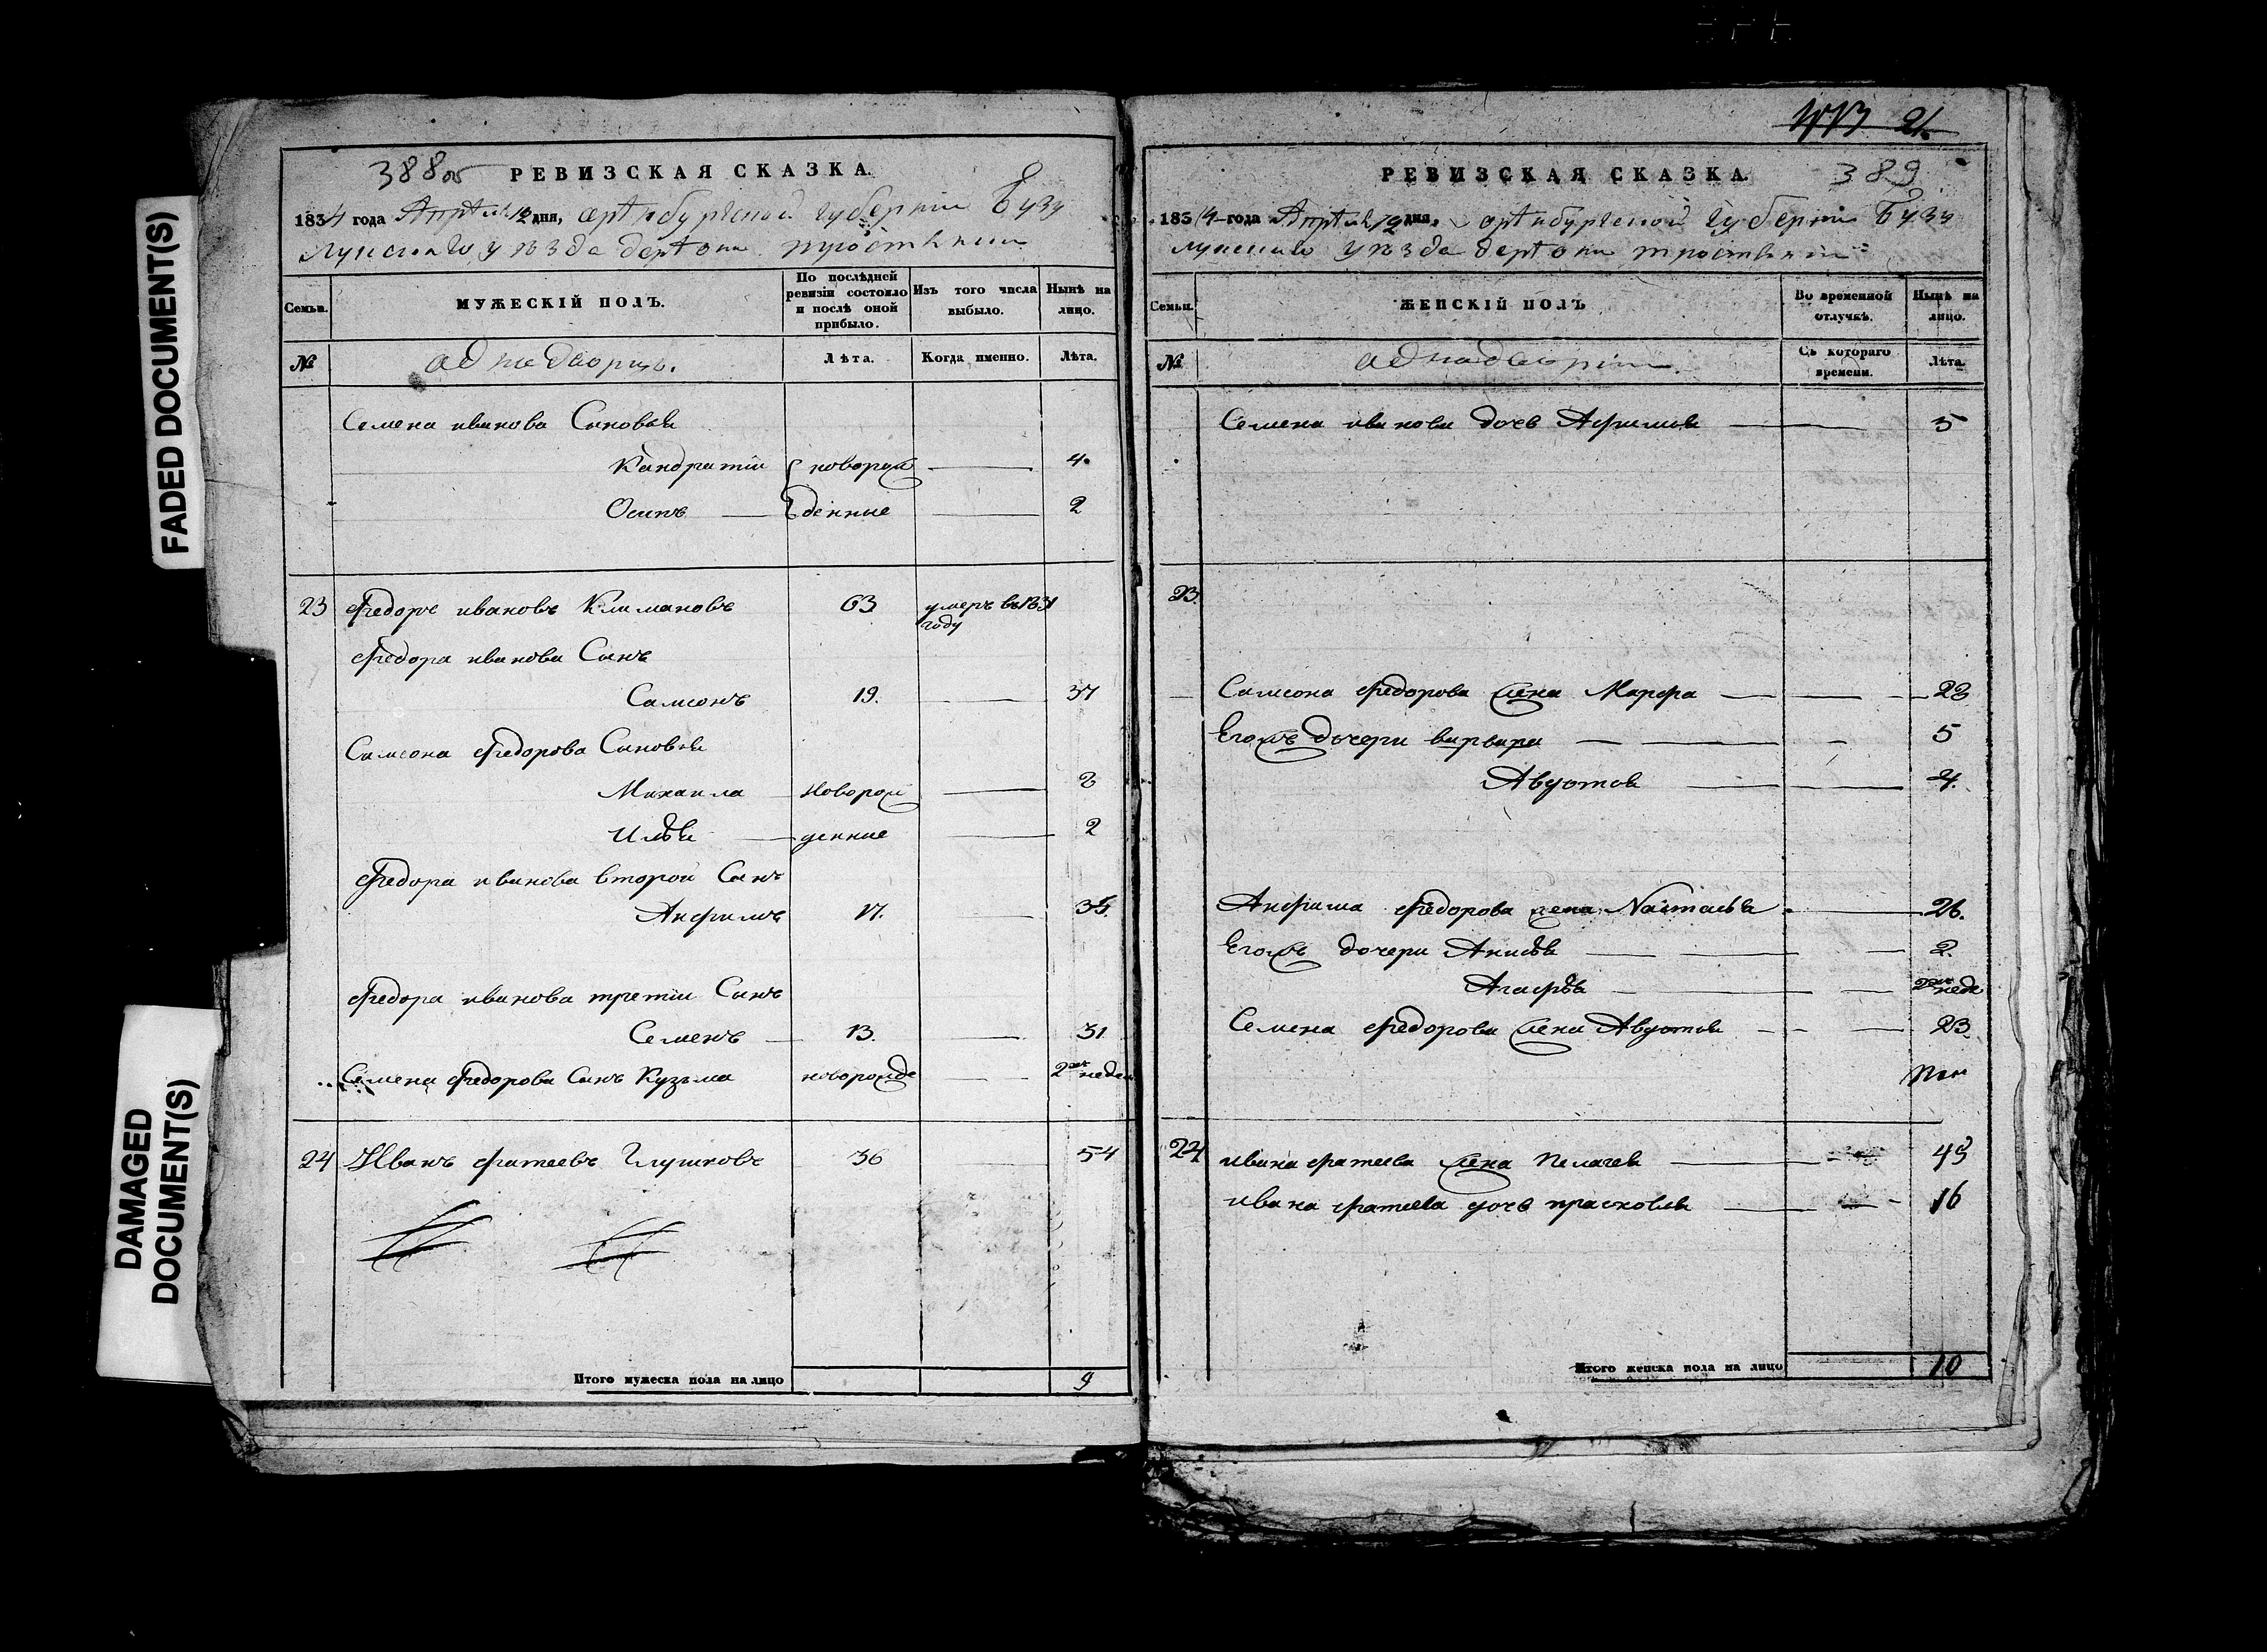 FADED DOCUMENT(S)
DAMAGED
DOCUMENT(S)
388об РЕВИЗСКАЯ СКАЗКА.
1834 года Апреля 12 дня, оренбургской губернии Бузу
лукскаго уѣзда деревни тростянки
Семьи.
МУЖЕСКІЙ ПОЛЪ.
По послѣдней ревизіи состояло и послѣ оной прибыло.
Изъ того числа выбыло.
Нынѣ на лицо.
№
аднадворцы.
Лѣта.
Когда именно.
Лѣта.
Семена иванова Сыновья
Кандратий новорож 4.
Осипъ денные 2
23 Федоръ ивановъ Климановъ 63 умеръ въ 1831
году
Федора иванова Сынъ
Самсонъ 19. 37
Самсона Федорова Сыновья
Михаила новорож 3
Илья денные 2
Федора иванова второй Сынъ
Анфимъ 17. 35.
Федора иванова третий Сынъ
Семенъ 13. 31
Семена Федорова Сынъ Кузьма новорожде 2 недел
24 Иванъ фатеевъ Глушковъ 36 54
Итого мужеска пола на лицо 9
21.
РЕВИЗСКАЯ СКАЗКА. 389
1834 года Апреля 12 дня, оренбургской губерніи Бузу
лукскаго уѣзда деревни тростянки
Семьи.
ЖЕНСКІЙ ПОЛЪ
Во временной отлучкѣ.
Нынѣ на лицо.
№
аднадворки
Съ котораго времени.
Лѣта.
Семена иванова дочь Афимья 5
23.
Самсона Федорова жена Марфа 28
Егожъ дочери варвара 5
Авдотья 4.
Анфима Федорова жена Настасья 26.
Егожъ дочери Анисья 2.
Агафья 2 неде
Семена Федорова жена Авдотья 23.
24 ивана фатеева жена Пелагея 43
ивана фатеева дочь прасковья 16
Итого женска пола на лицо 10